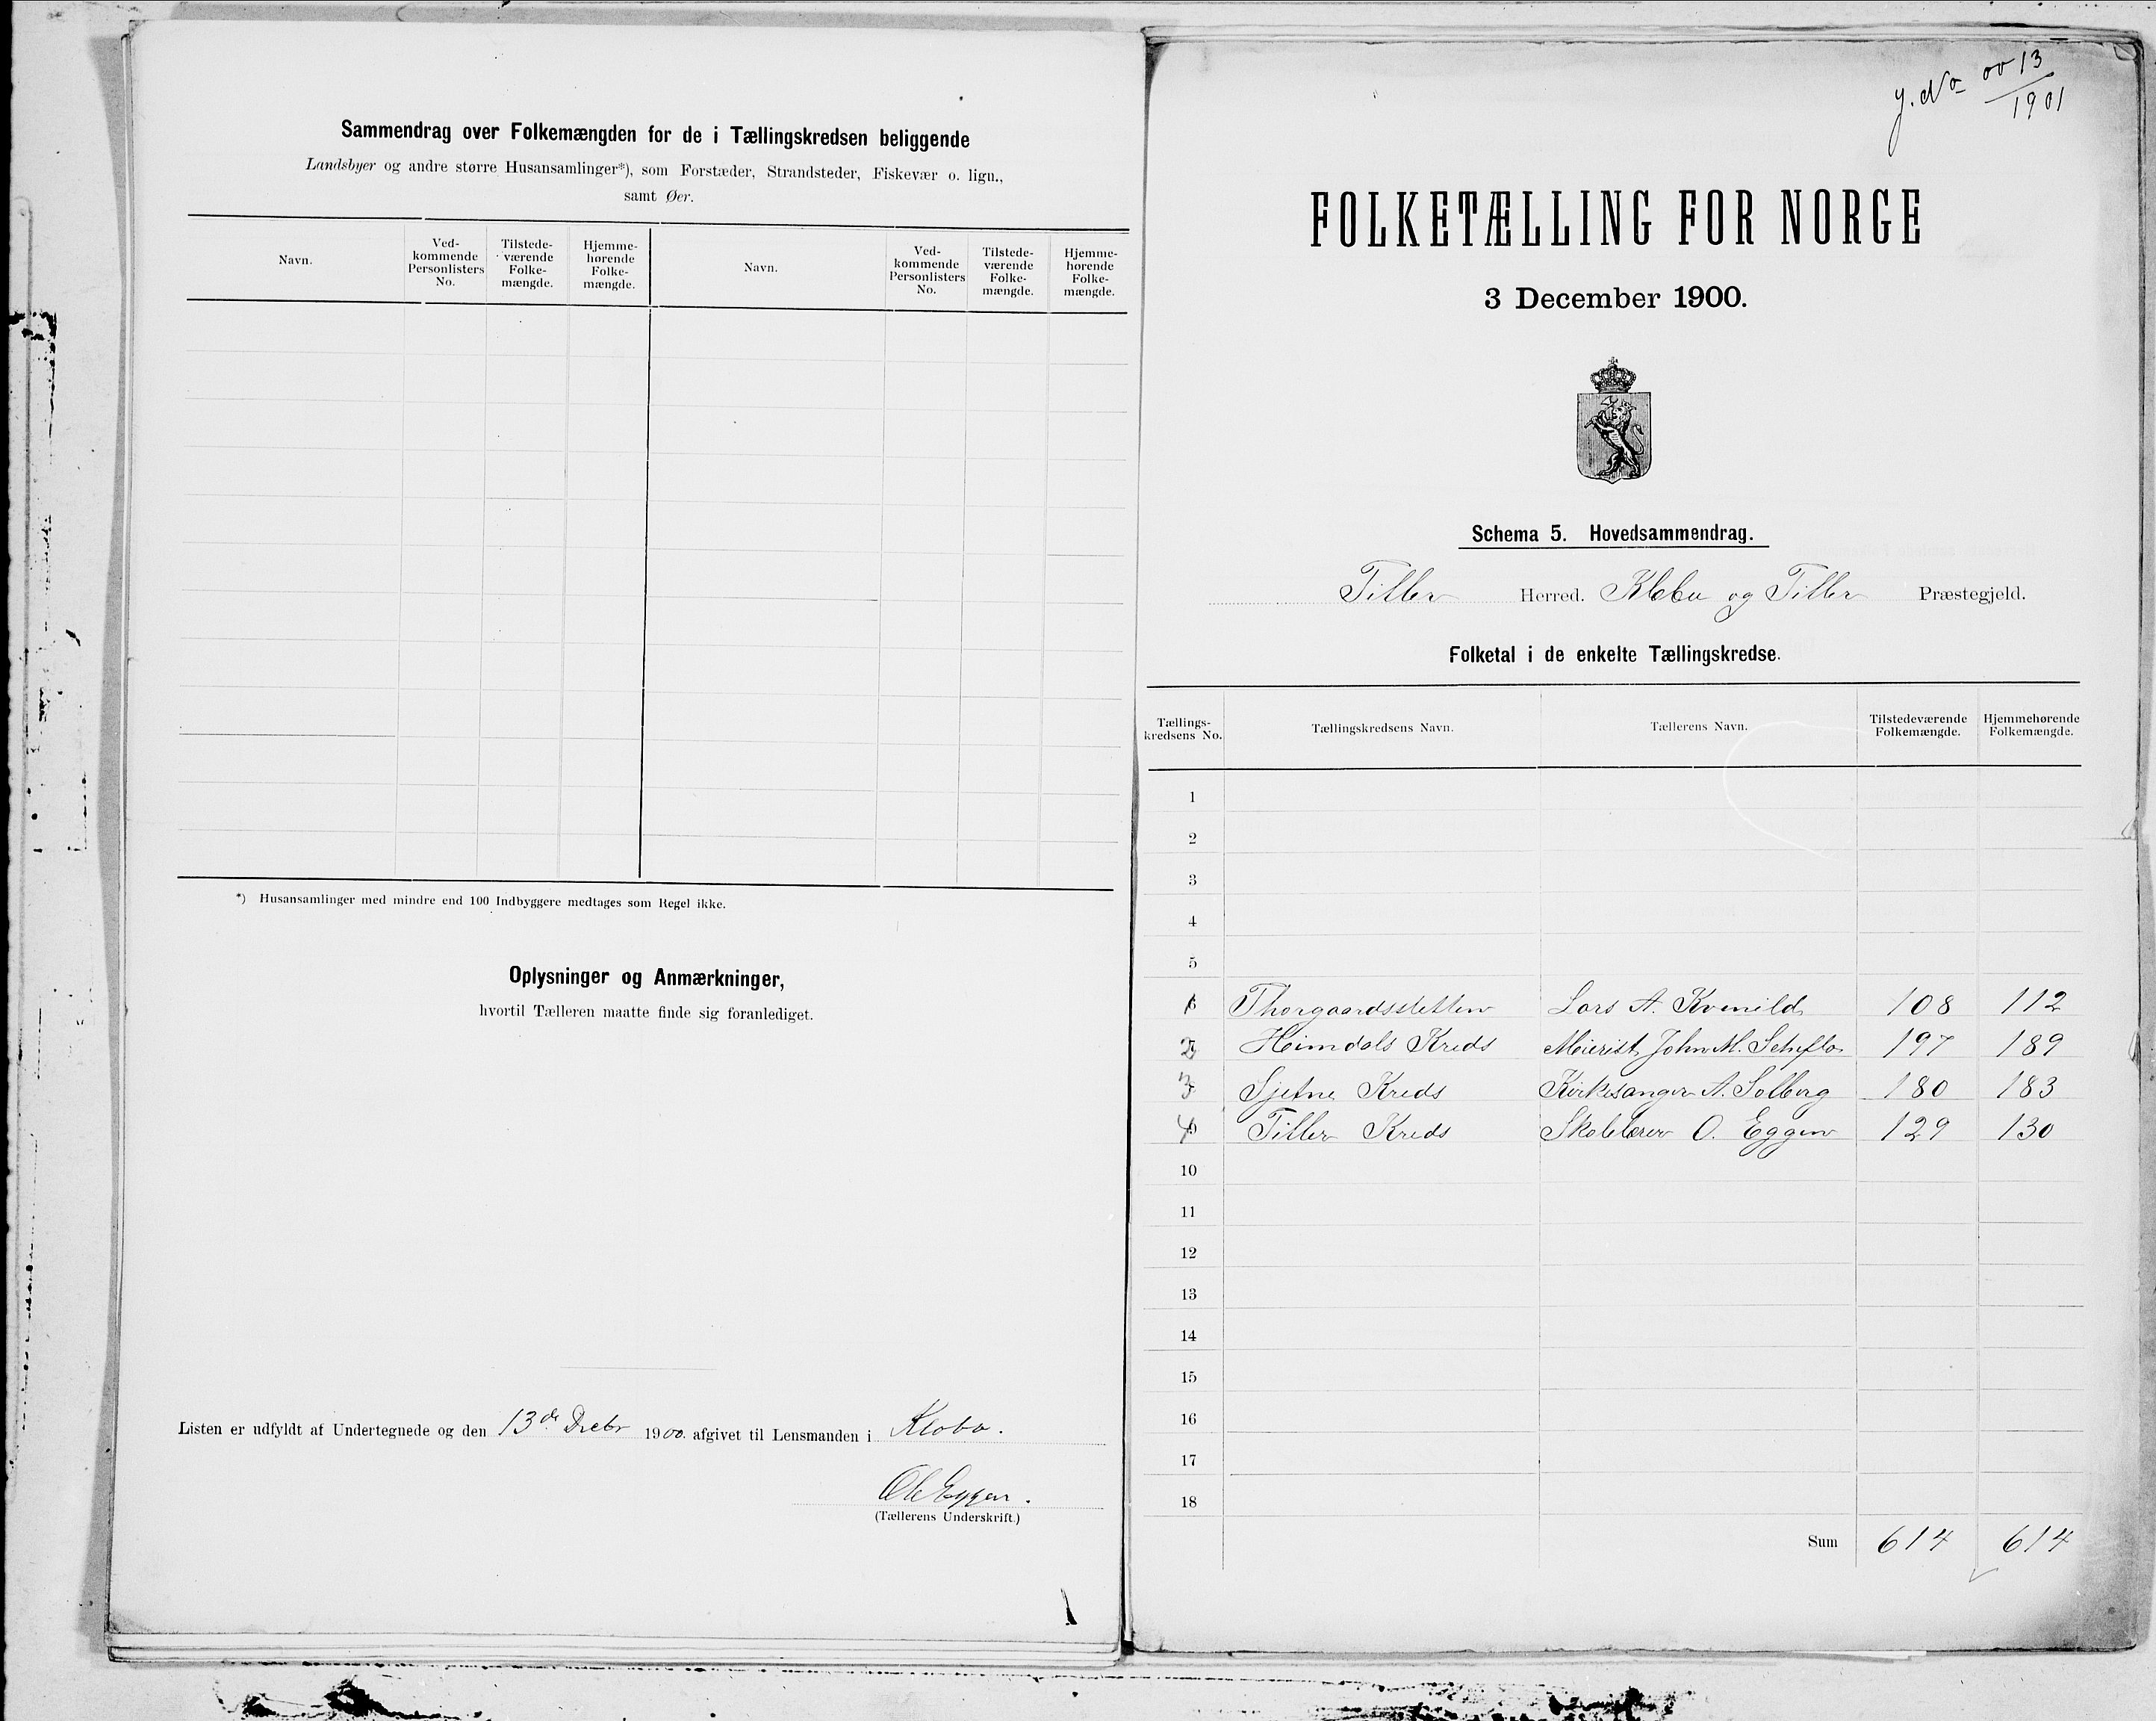 Sammendrag over Folkemængden for de i Tællingskredsen beliggende
Landsbyer og andre større Husansamlinger*), som Forstæder, Strandsteder, Fiskevær o. lign.,
samt Øer.
Navn. Ved-kommende Personlisters No. Tilstede-værende Folke-mængde. Hjemme-hørende Folke-mængde. Navn. Ved-kommende Personlisters No. Tilstede-værende Folke-mængde. Hjemme-hørende Folke-mængde.
*) Husansamlinger med mindre end 100 Indbyggere medtages som Regel ikke.
Oplysninger og Anmærkninger,
hvortil Tælleren maatte finde sig foranlediget.
Listen er udfyldt af Undertegnede og den 13de Decbr 1900. afgivet til Lensmanden i Klæbo.
Ole Eggen.
(Tællerens Underskrift.)
13
1901
FOLKETÆLLING FOR NORGE
3 December 1900.
Schema 5. Hovedsammendrag.
Tiller Herred. Klæbu og Tiller Præstegjeld.
Folketal i de enkelte Tællingskredse.
Tællings-kredsens No. Tællingskredsens Navn. Tællerens Navn. Tilstedeværende Folkemængde. Hjemmehørende Folkemængde.
1
2
3
4
5
1 Thorgaardssletten Lars A. Kvenild 108 112
2 Heimdals Kreds Meierist John M. 197 189
3 Sjetne Kreds Kirkesanger A. Solberg 180 183
4 Tiller Kreds Skolelærer O. Eggen 129 130
10
11
12
13
14
15
16
17
18
Sum 614 614